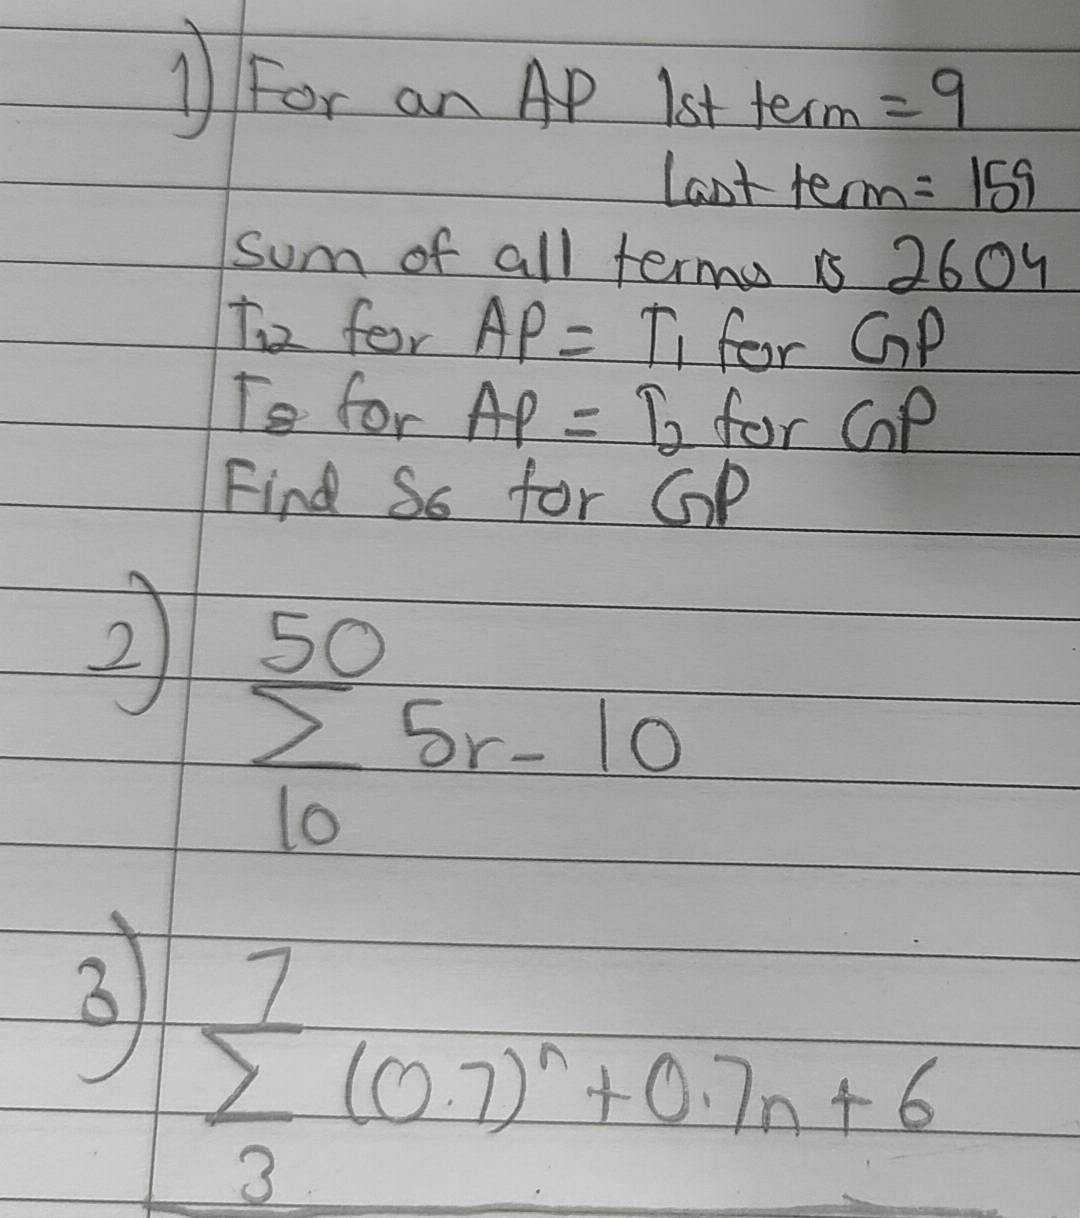 1) For an AP 1st term = 9
Last term = 159
Sum of all terms is 2604
T12 for AP = T1 for GP
T8 for AP = T2 for GP
Find S6 for GP
2) 50
∑ 5r - 10
10
3) 7
∑ (0.7)ⁿ + 0.7n + 6
3